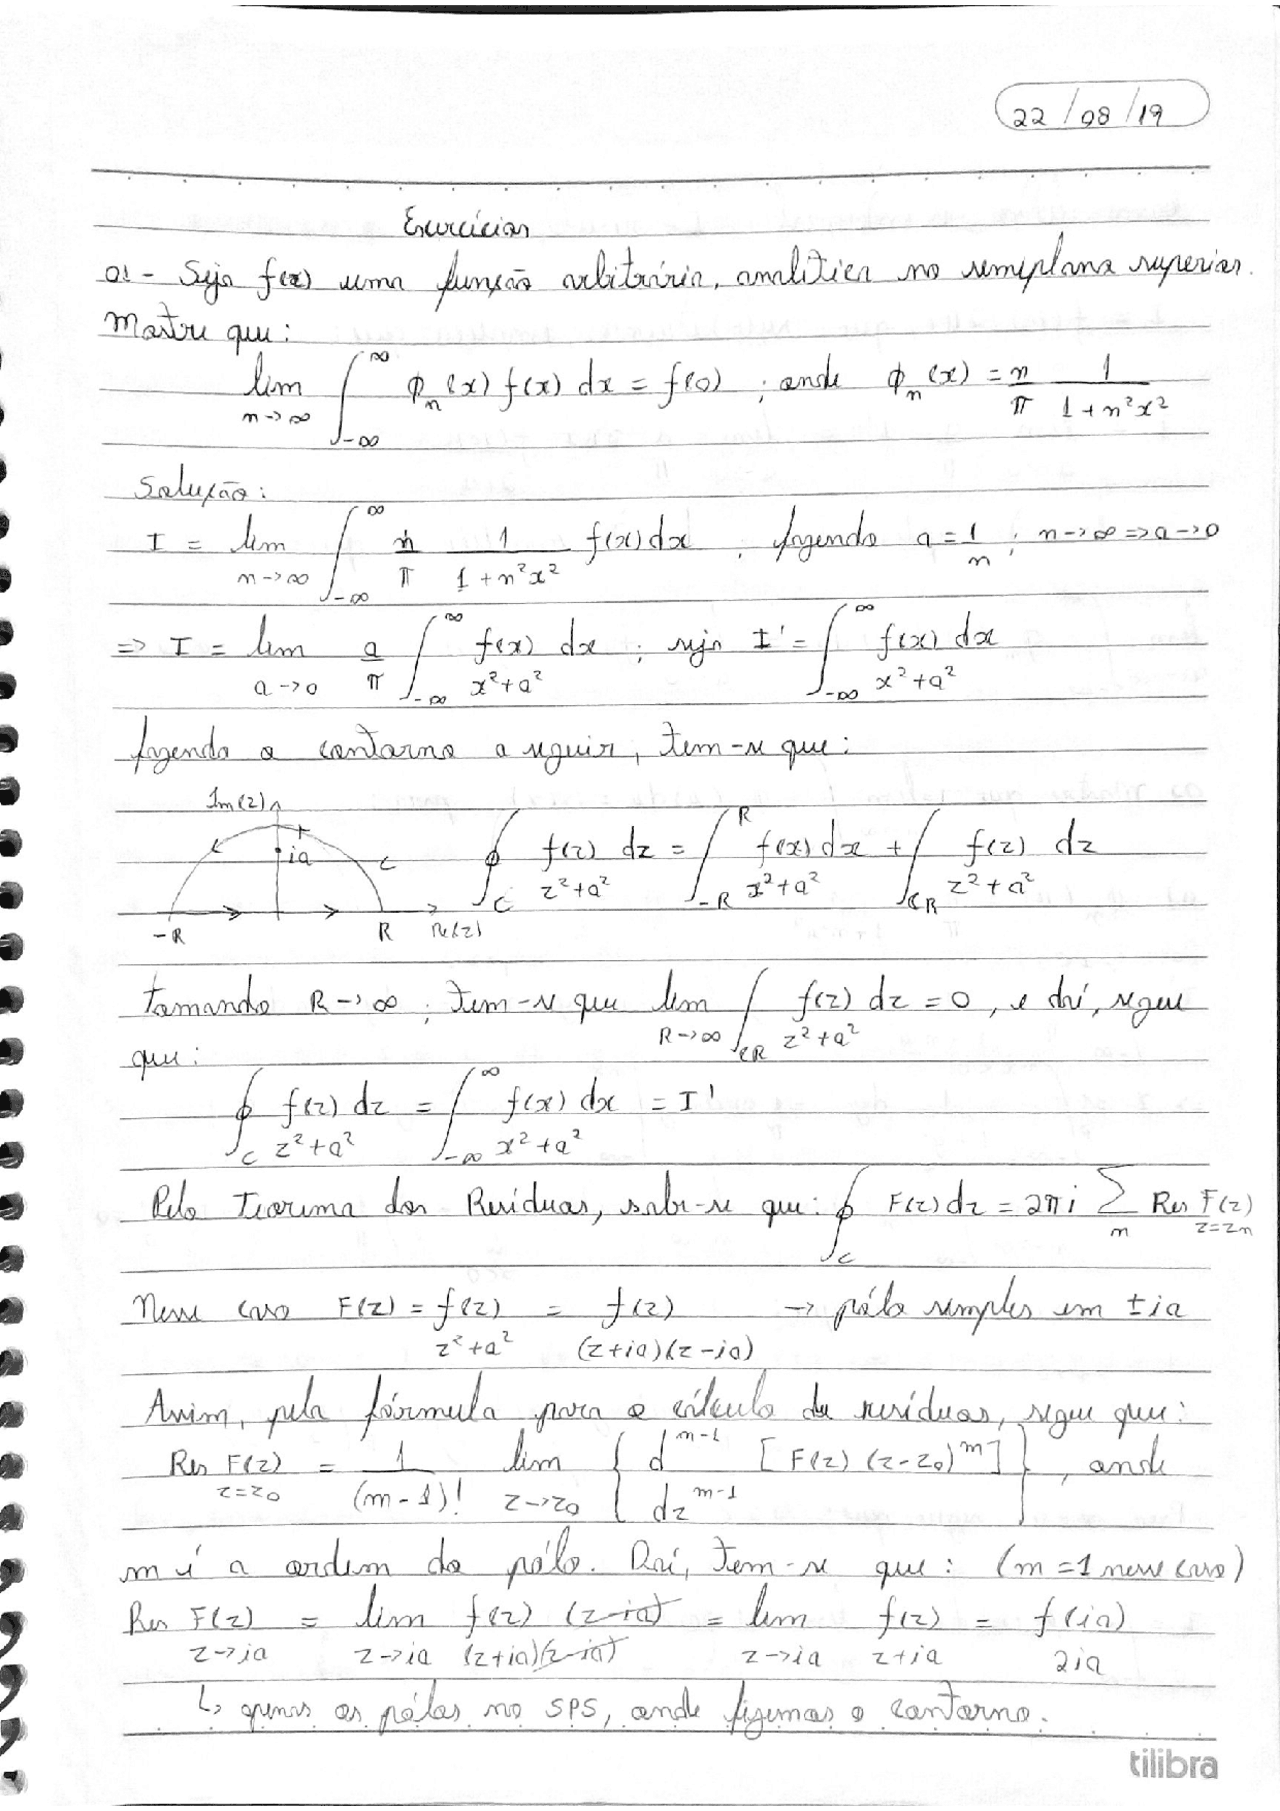 22/08/19
Exercícios
01 - Seja f(z) uma função arbitrária, analítica no semiplano superior.
Mostre que:
lim n→∞ ∫_{-∞}^{∞} ϕ_n(x) f(x) dx = f(0) ; onde ϕ_n(x) = n/π 1/(1+n²x²)
Solução:
I = lim n→∞ ∫_{-∞}^{∞} n/π 1/(1+n²x²) f(x)dx ; fazendo a = 1/n ; n→∞ ⇒ a→0
⇒ I = lim a→0 a/π ∫_{-∞}^{∞} f(x)/(x²+a²) dx ; seja I' = ∫_{-∞}^{∞} f(x)/(x²+a²) dx
fazendo o contorno a seguir, tem-se que:
Im(z)
ia
C
-R R Re(z)
∮_C f(z)/(z²+a²) dz = ∫_{-R}^{R} f(x)/(x²+a²) dx + ∫_{CR} f(z)/(z²+a²) dz
tomando R→∞ ; tem-se que lim R→∞ ∫_{CR} f(z)/(z²+a²) dz = 0, e daí, segue
que:
∮_C f(z)/(z²+a²) dz = ∫_{-∞}^{∞} f(x)/(x²+a²) dx = I'
Pelo Teorema dos Resíduos, sabe-se que: ∮_C F(z)dz = 2πi Σ_n Res F(z) z=zn
Nesse caso F(z) = f(z)/(z²+a²) = f(z)/((z+ia)(z-ia)) → pólo simples em ±ia
Assim, pela fórmula para o cálculo de resíduos, segue que:
Res F(z) z=z₀ = 1/(m-1)! lim z→z₀ { d^{m-1}/dz^{m-1} [F(z)(z-z₀)^m] }, onde
m é a ordem do pólo. Daí, tem-se que: (m=1 nesse caso)
Res F(z) z→ia = lim z→ia f(z)(z-ia)/((z+ia)(z-ia)) = lim z→ia f(z)/(z+ia) = f(ia)/2ia
↳ apenas os pólos no SPS, onde fizemos o contorno.
tilibra